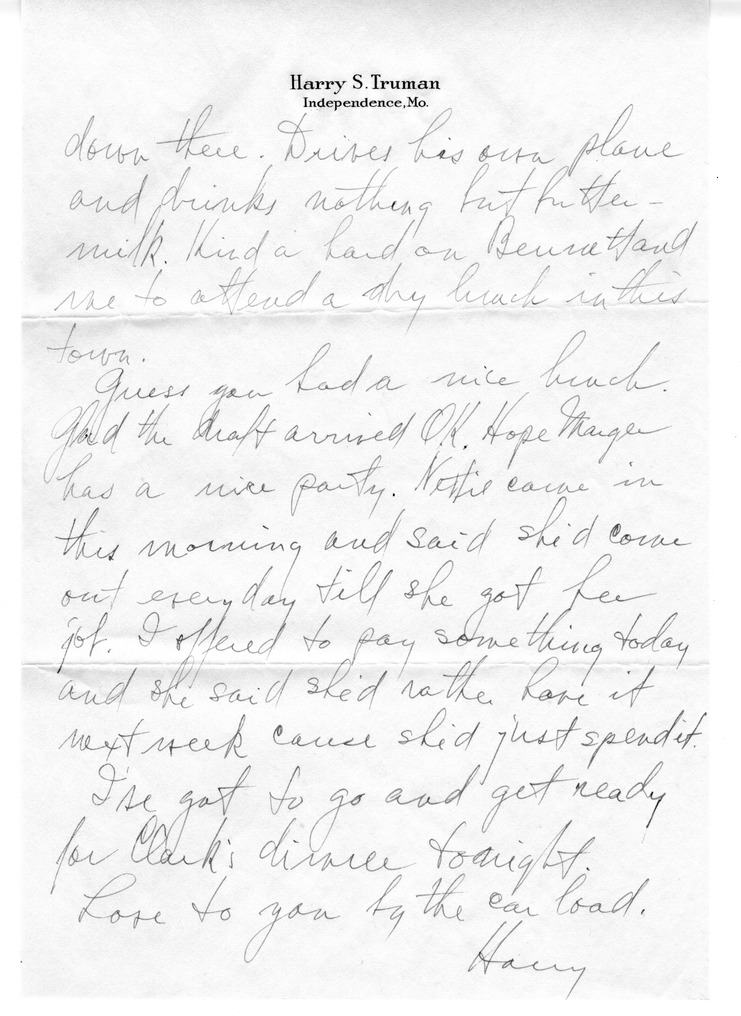 Harry S. Truman
Independence, Mo.
down there. Drives his own plane
and drinks nothing but butter-
milk. Kind a hard on Bennett and
me to attend a dry lunch in this
town.
Guess you had a nice lunch.
Glad the draft arrived OK. Hope Marger
has a nice party. Nettie came in
this morning and said she'd come
out everyday till she got her
job. I offered to pay something today
and she said she'd rather have it
next week cause she'd just spend it.
I've got to go and get ready
for Clark's dinner tonight.
Love to you by the car load.
Harry